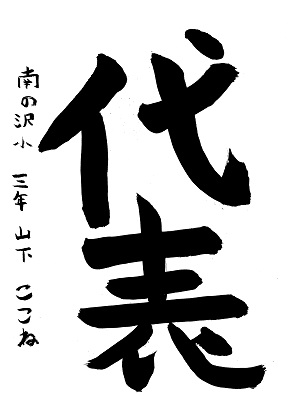 代表
南の沢小 三年 山下 ここね